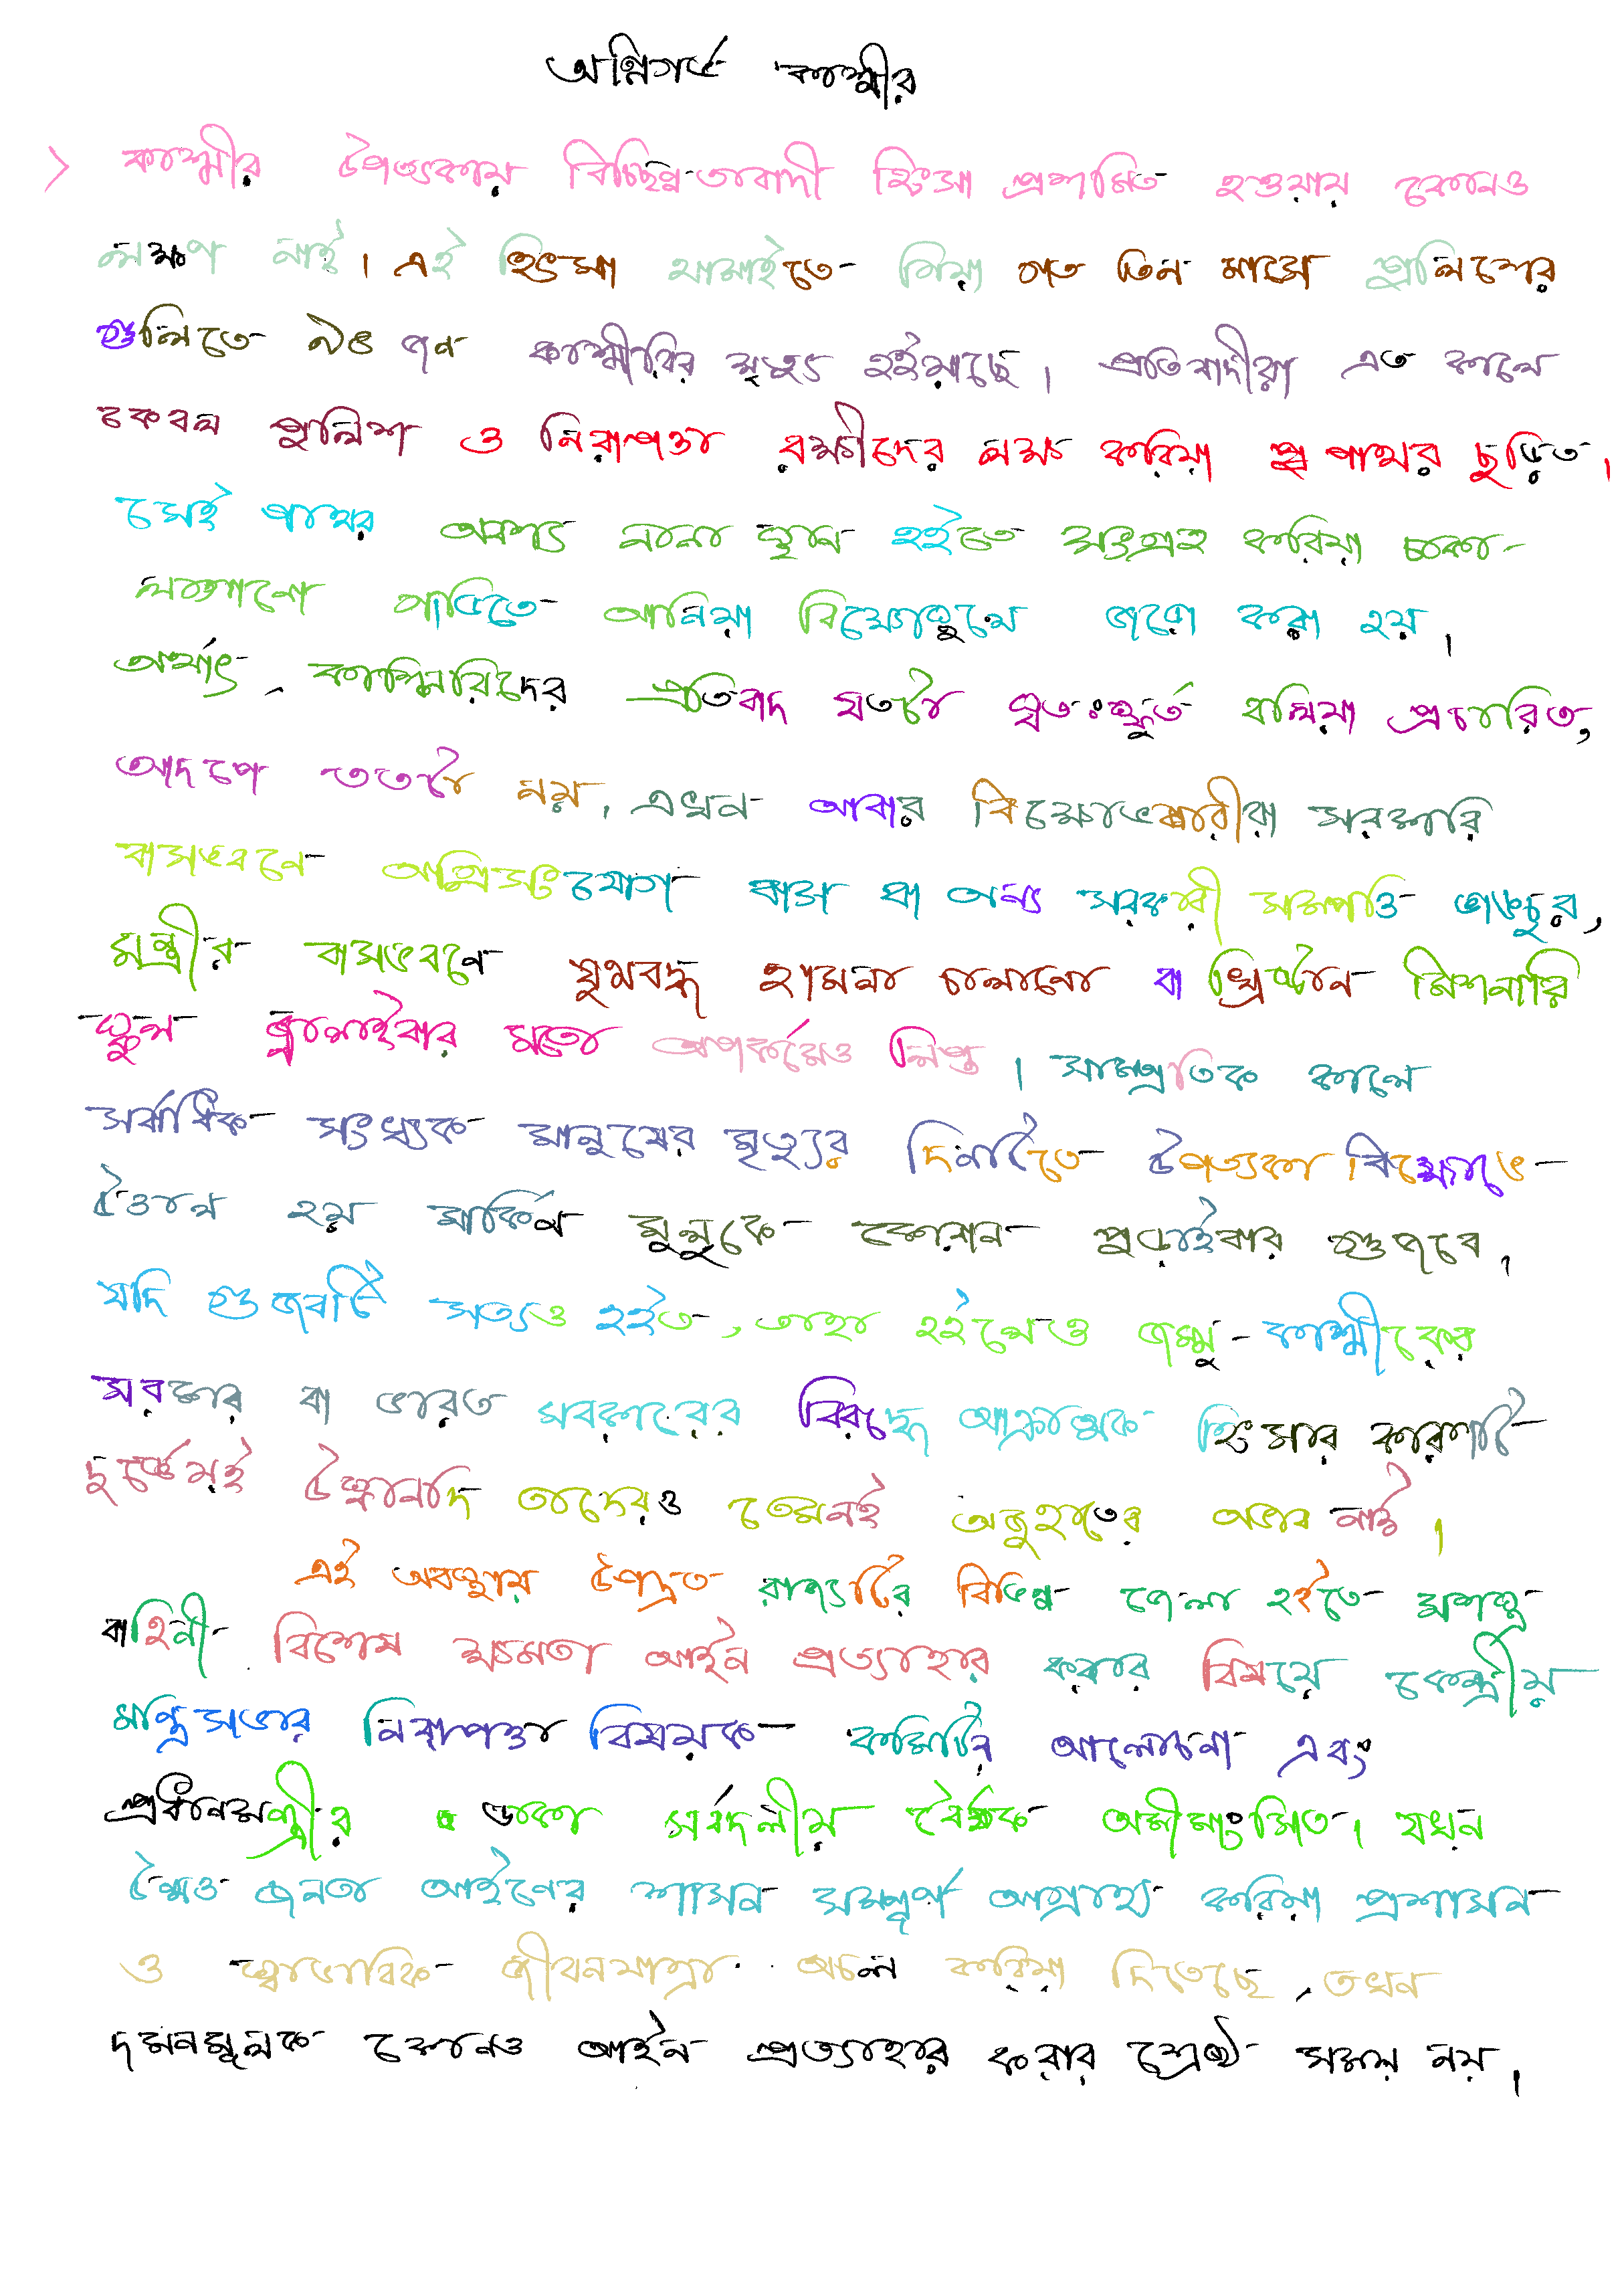 অগ্নিগর্ভ কাশ্মীর
> কাশ্মীর উপত্যকায় বিচ্ছিন্নতাবাদী হিংসা প্রশমিত হওয়ায় কোনও
লক্ষণ নাই। এই হিংসা থামাইতে গিয়া গত তিন মাসে পুলিশের
গুলিতে ৯৬ জন কাশ্মীরির মৃত্যু হইয়াছে। প্রতিবাদীরা এত কালে
কেবল পুলিশ ও নিরাপত্তা রক্ষীদের লক্ষ্য করিয়া পাথর ছুড়িত।
সেই পাথর অবশ্য নানা স্থান হইতে সংগ্রহ করিয়া চাকা-
লাগানো গাড়িতে আনিয়া বিক্ষোভস্থলে জড়ো করা হয়।
অর্থাৎ, কাশ্মিরিদের প্রতিবাদ যতটা স্বতঃস্ফূর্ত বলিয়া প্রচারিত,
আদপে ততটা নয়। এখন আবার বিক্ষোভকারীরা সরকারি
বাসভবনে অগ্নিসংযোগ বাস বা অন্য সরকারী সম্পত্তি ভাঙচুর,
মন্ত্রীর বাসভবনে যুথবদ্ধ হামলা চালানো বা খ্রিস্টান মিশনারি
স্কুল জ্বালাইবার মতো অপকর্মেও লিপ্ত। সাম্প্রতিক কালে
সর্বাধিক সংখ্যক মানুষের মৃত্যুর দিনটিতে উপত্যকা বিক্ষোভে
উত্তাল হয় মার্কিন মুলুকে কোরান পুড়াইবার গুজবে।
যদি গুজবটি সত্যও হইত, তাহা হইলেও জম্মু-কাশ্মীরের
সরকার বা ভারত সরকারের বিরুদ্ধে আক্রাত্মক হিংসার কারণটি
দুর্জ্ঞেয়ই উস্কানি তাদেরও তেমনই অজুহাতের অভাব নাই।
এই অবস্থায় উপদ্রুত রাজ্যটির বিভিন্ন জেলা হইতে সশস্ত্র
বাহিনী বিশেষ ক্ষমতা আইন প্রত্যাহার করার বিষয়ে কেন্দ্রীয়
মন্ত্রিসভার নিরাপত্তা বিষয়ক কমিটির আলোচনা এবং
প্রধানমন্ত্রীর ডাকা সর্বদলীয় বৈঠক অমীমাংসিত। যখন
উন্মত্ত জনতা আইণের শাসন সম্পূর্ণ অগ্রাহ্য করিয়া প্রশাসন
ও স্বাভাবিক জীবনযাত্রা অচল করিয়া দিতেছে, তখন
দমনমূলক কোনও আইন প্রত্যাহার করার শ্রেষ্ঠ সময় নয়।